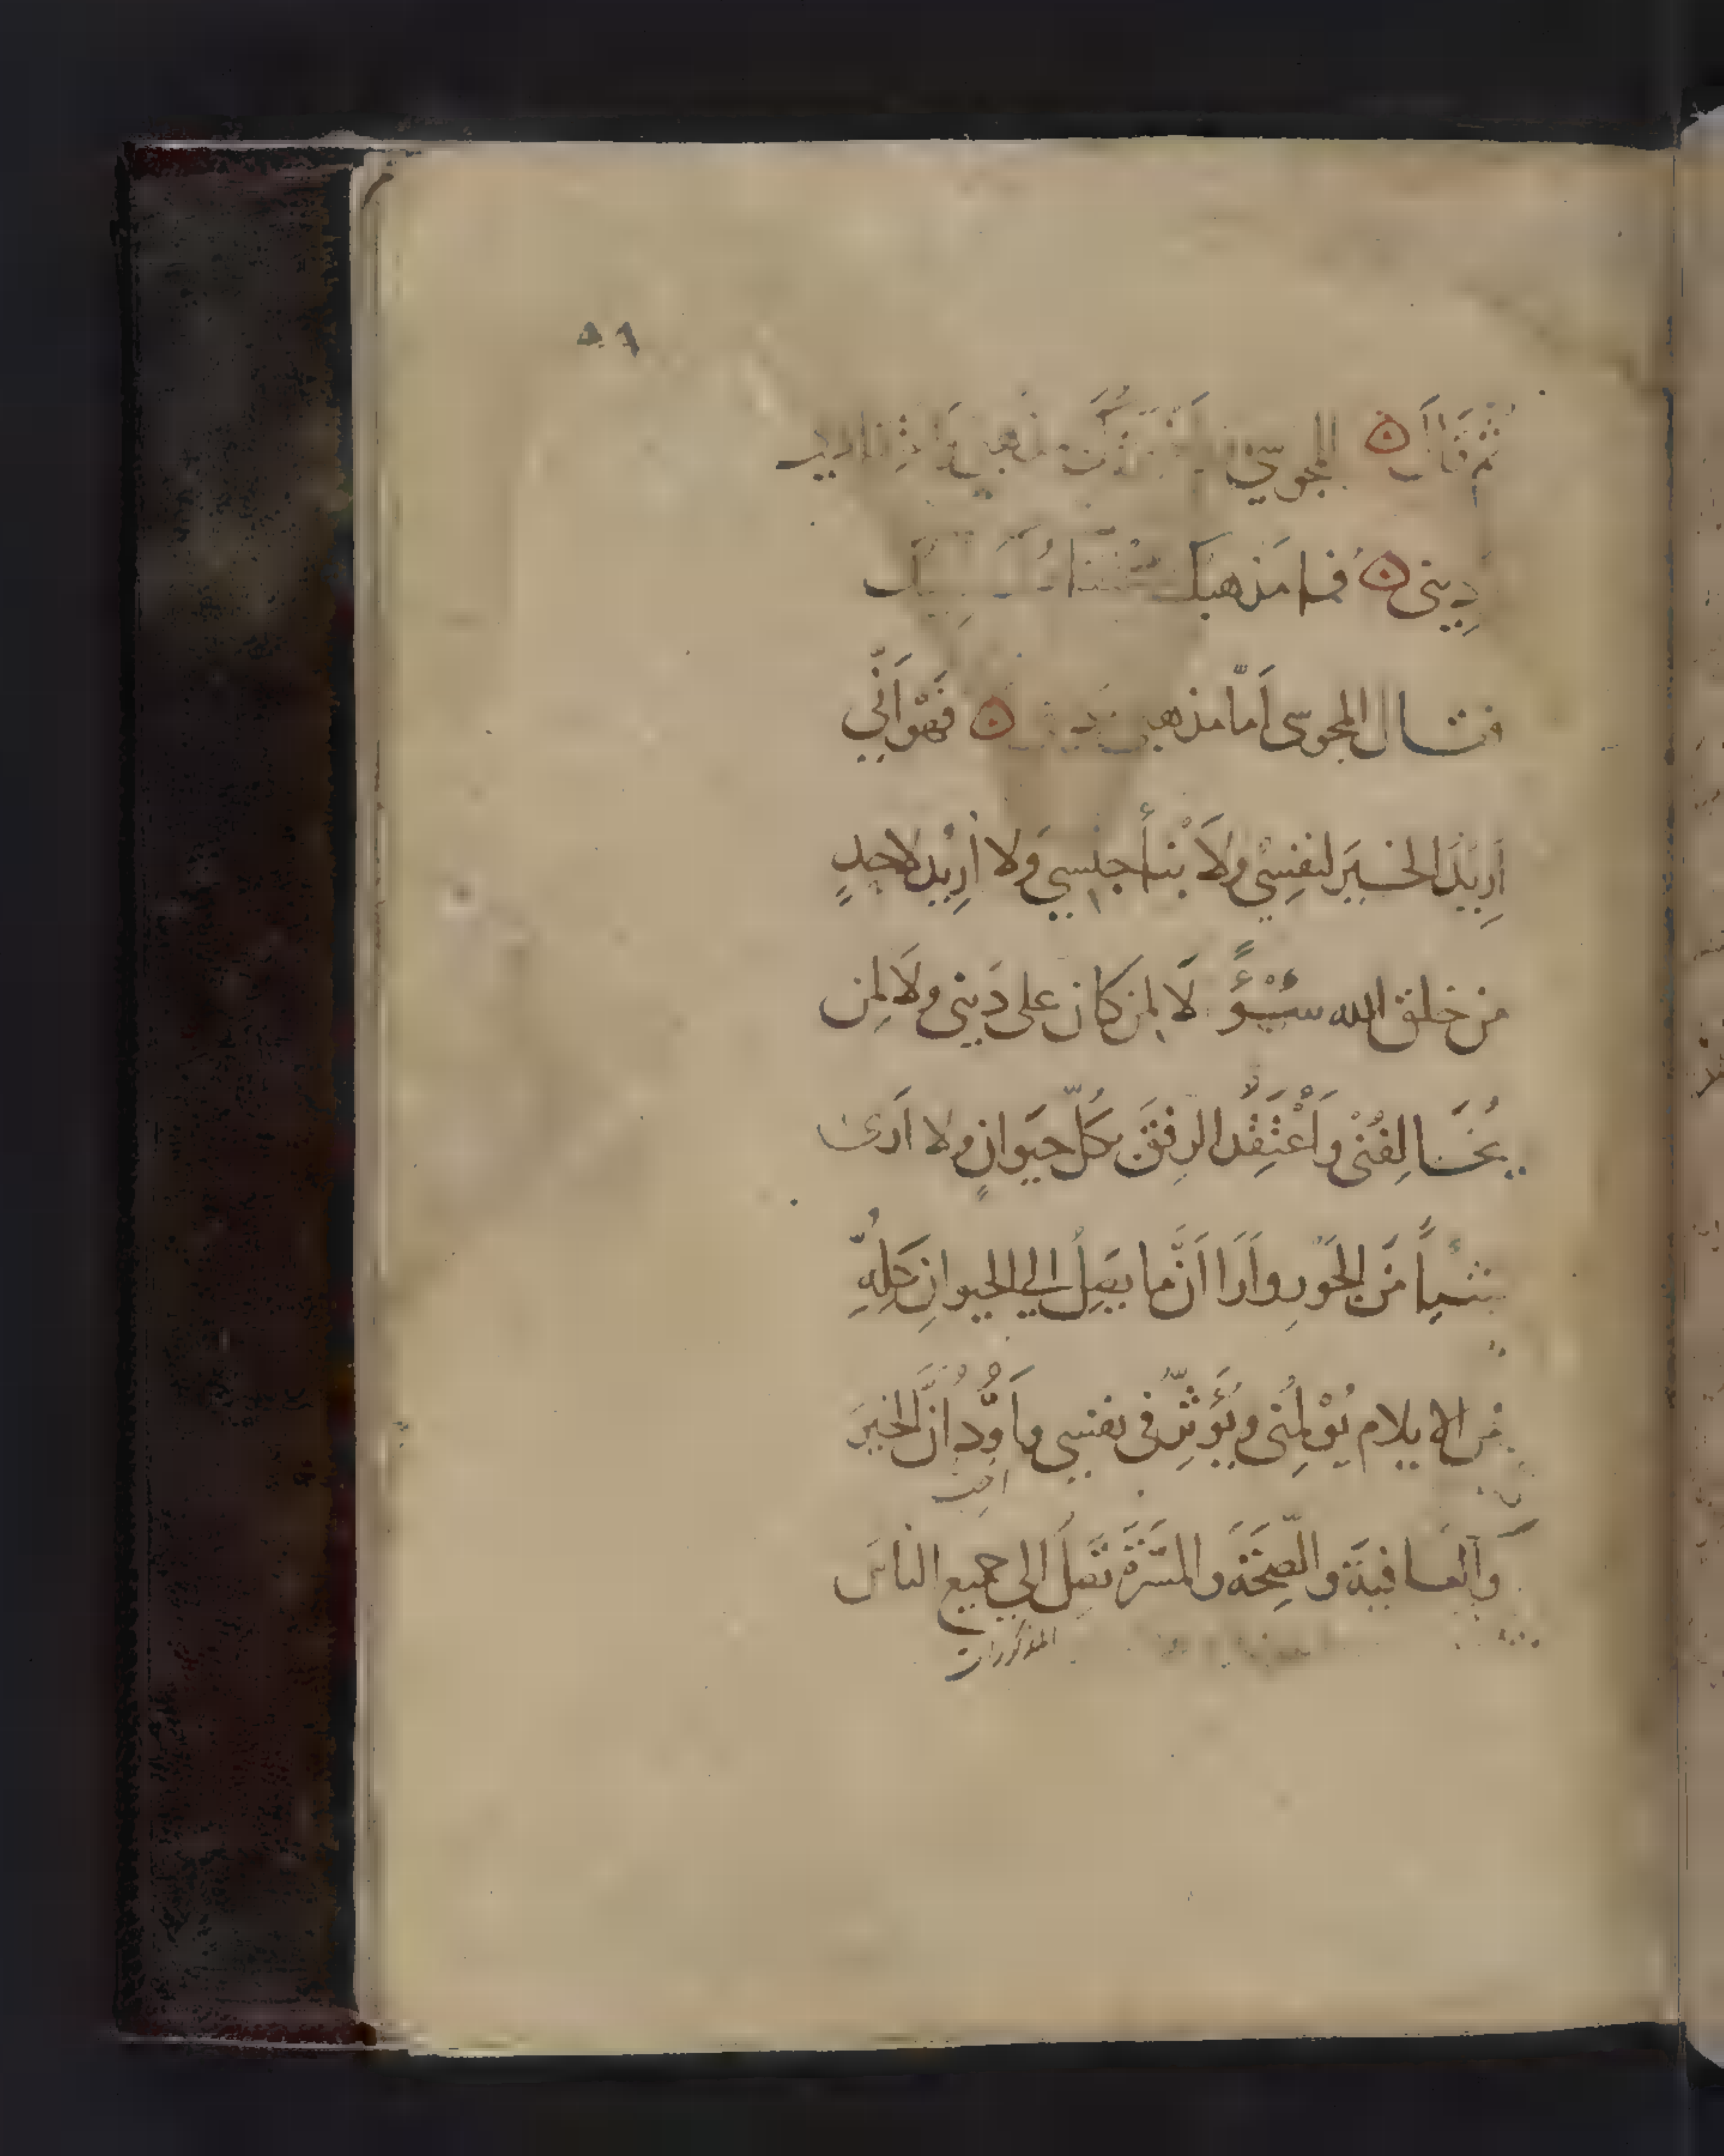 ٨٦
ثُمَّ قَالَ المجوسي
دِيني فما مَذهبك
فقال المجوسى اَمّا مذهبى فَهْوَ اَنّي
اُرِيْدُ الخَيرَ لنفسِيْ ولاَبْنأ جِنسِي وَلا اُرِيْدُ لاحدٍ
من خلق الله سُوْءً لَا لِمن كان على دِيني ولَا لِمن
يُخَالِفُنْى واَعْتَقِدُ الرفقَ بكلّ حيَوانٍ ولا اَرى
شيأً مَنَ الجَورِ واَرَا اَنَّ ما يصِلُ الي الحيوانِ كلِهِّ
مْن الايلام يُوْلِمُنى ويُؤَثِّر فى نفسِي واَوُدُّ اَنَّ الخيرَ
احب
وَالعَافيةَ والصّحَةَ والمسَرةَ تَصلُ الي جميع الناسَ
المذكورات